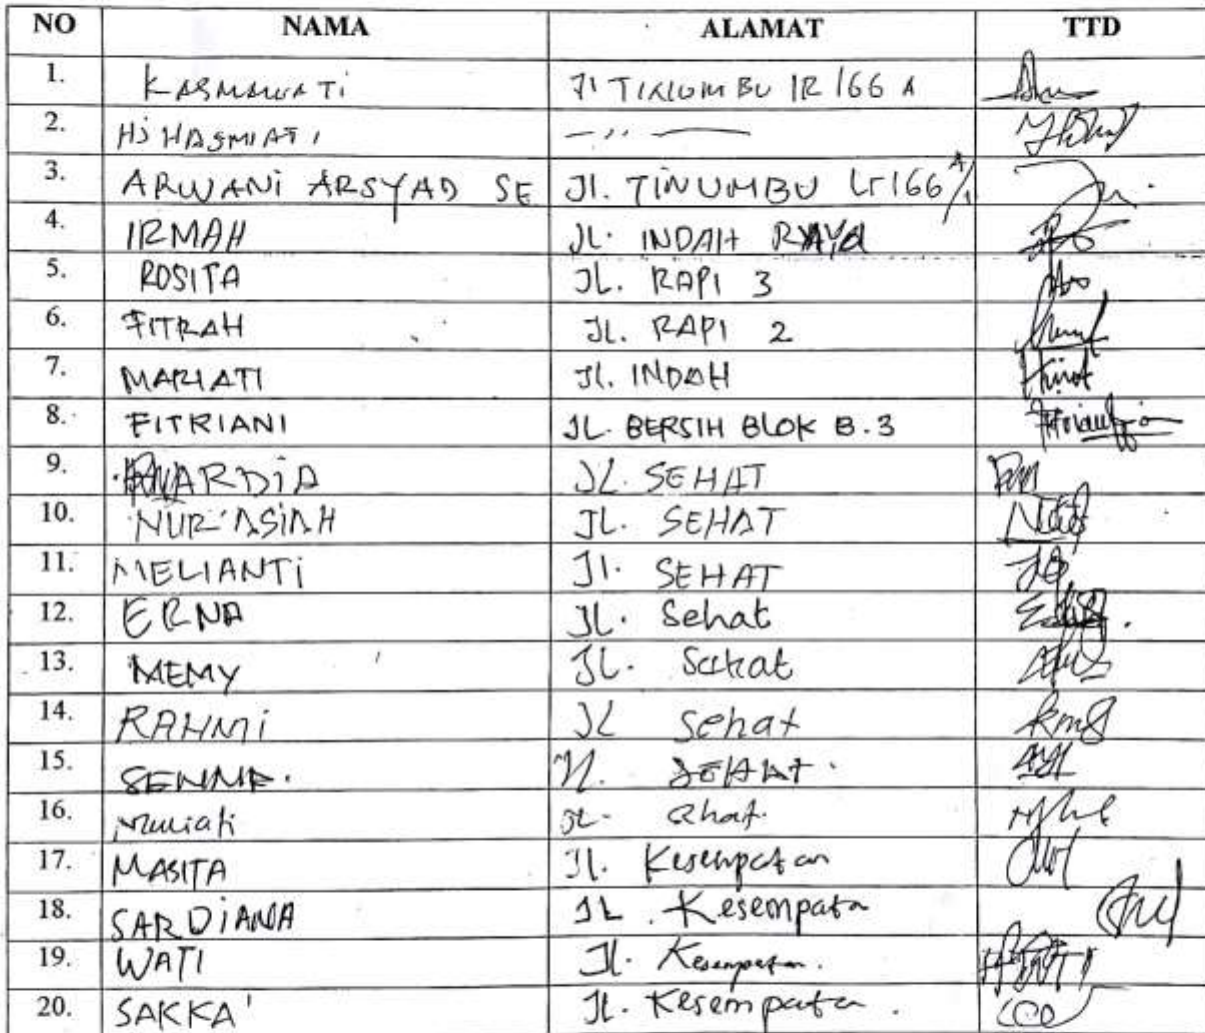 NO NAMA ALAMAT TTD
1. KASMAWATi Jl TINUMBU lR 166 A
2. HJ HASMIATI - ,, -
3. ARWANi ARSYAD SE Jl. TiNUMBU Lr 166 A/1
4. IRMAH JL. INDAH RAYA
5. ROSITA JL. RAPI 3
6. FITRAH JL. RAPI 2
7. MARIATI Jl. INDAH
8. FITRIANI JL. BERSIH BLOK B.3
9. JL. SEHAT
10. NUR'ASiAH JL. SEHAT
11. MELIANTi Jl. SEHAT
12. ERNA JL. Sehat
13. MEMY JL. Sehat
14. RAHMi JL Sehat
15. JL. SEHAT.
16. Muriati JL.
17. MASITA Jl. Kesempatan
18. SARDiANA JL. Kesempatan
19. WATI Jl. Kesempatan.
20. SAKKA' JL. Kesempatan